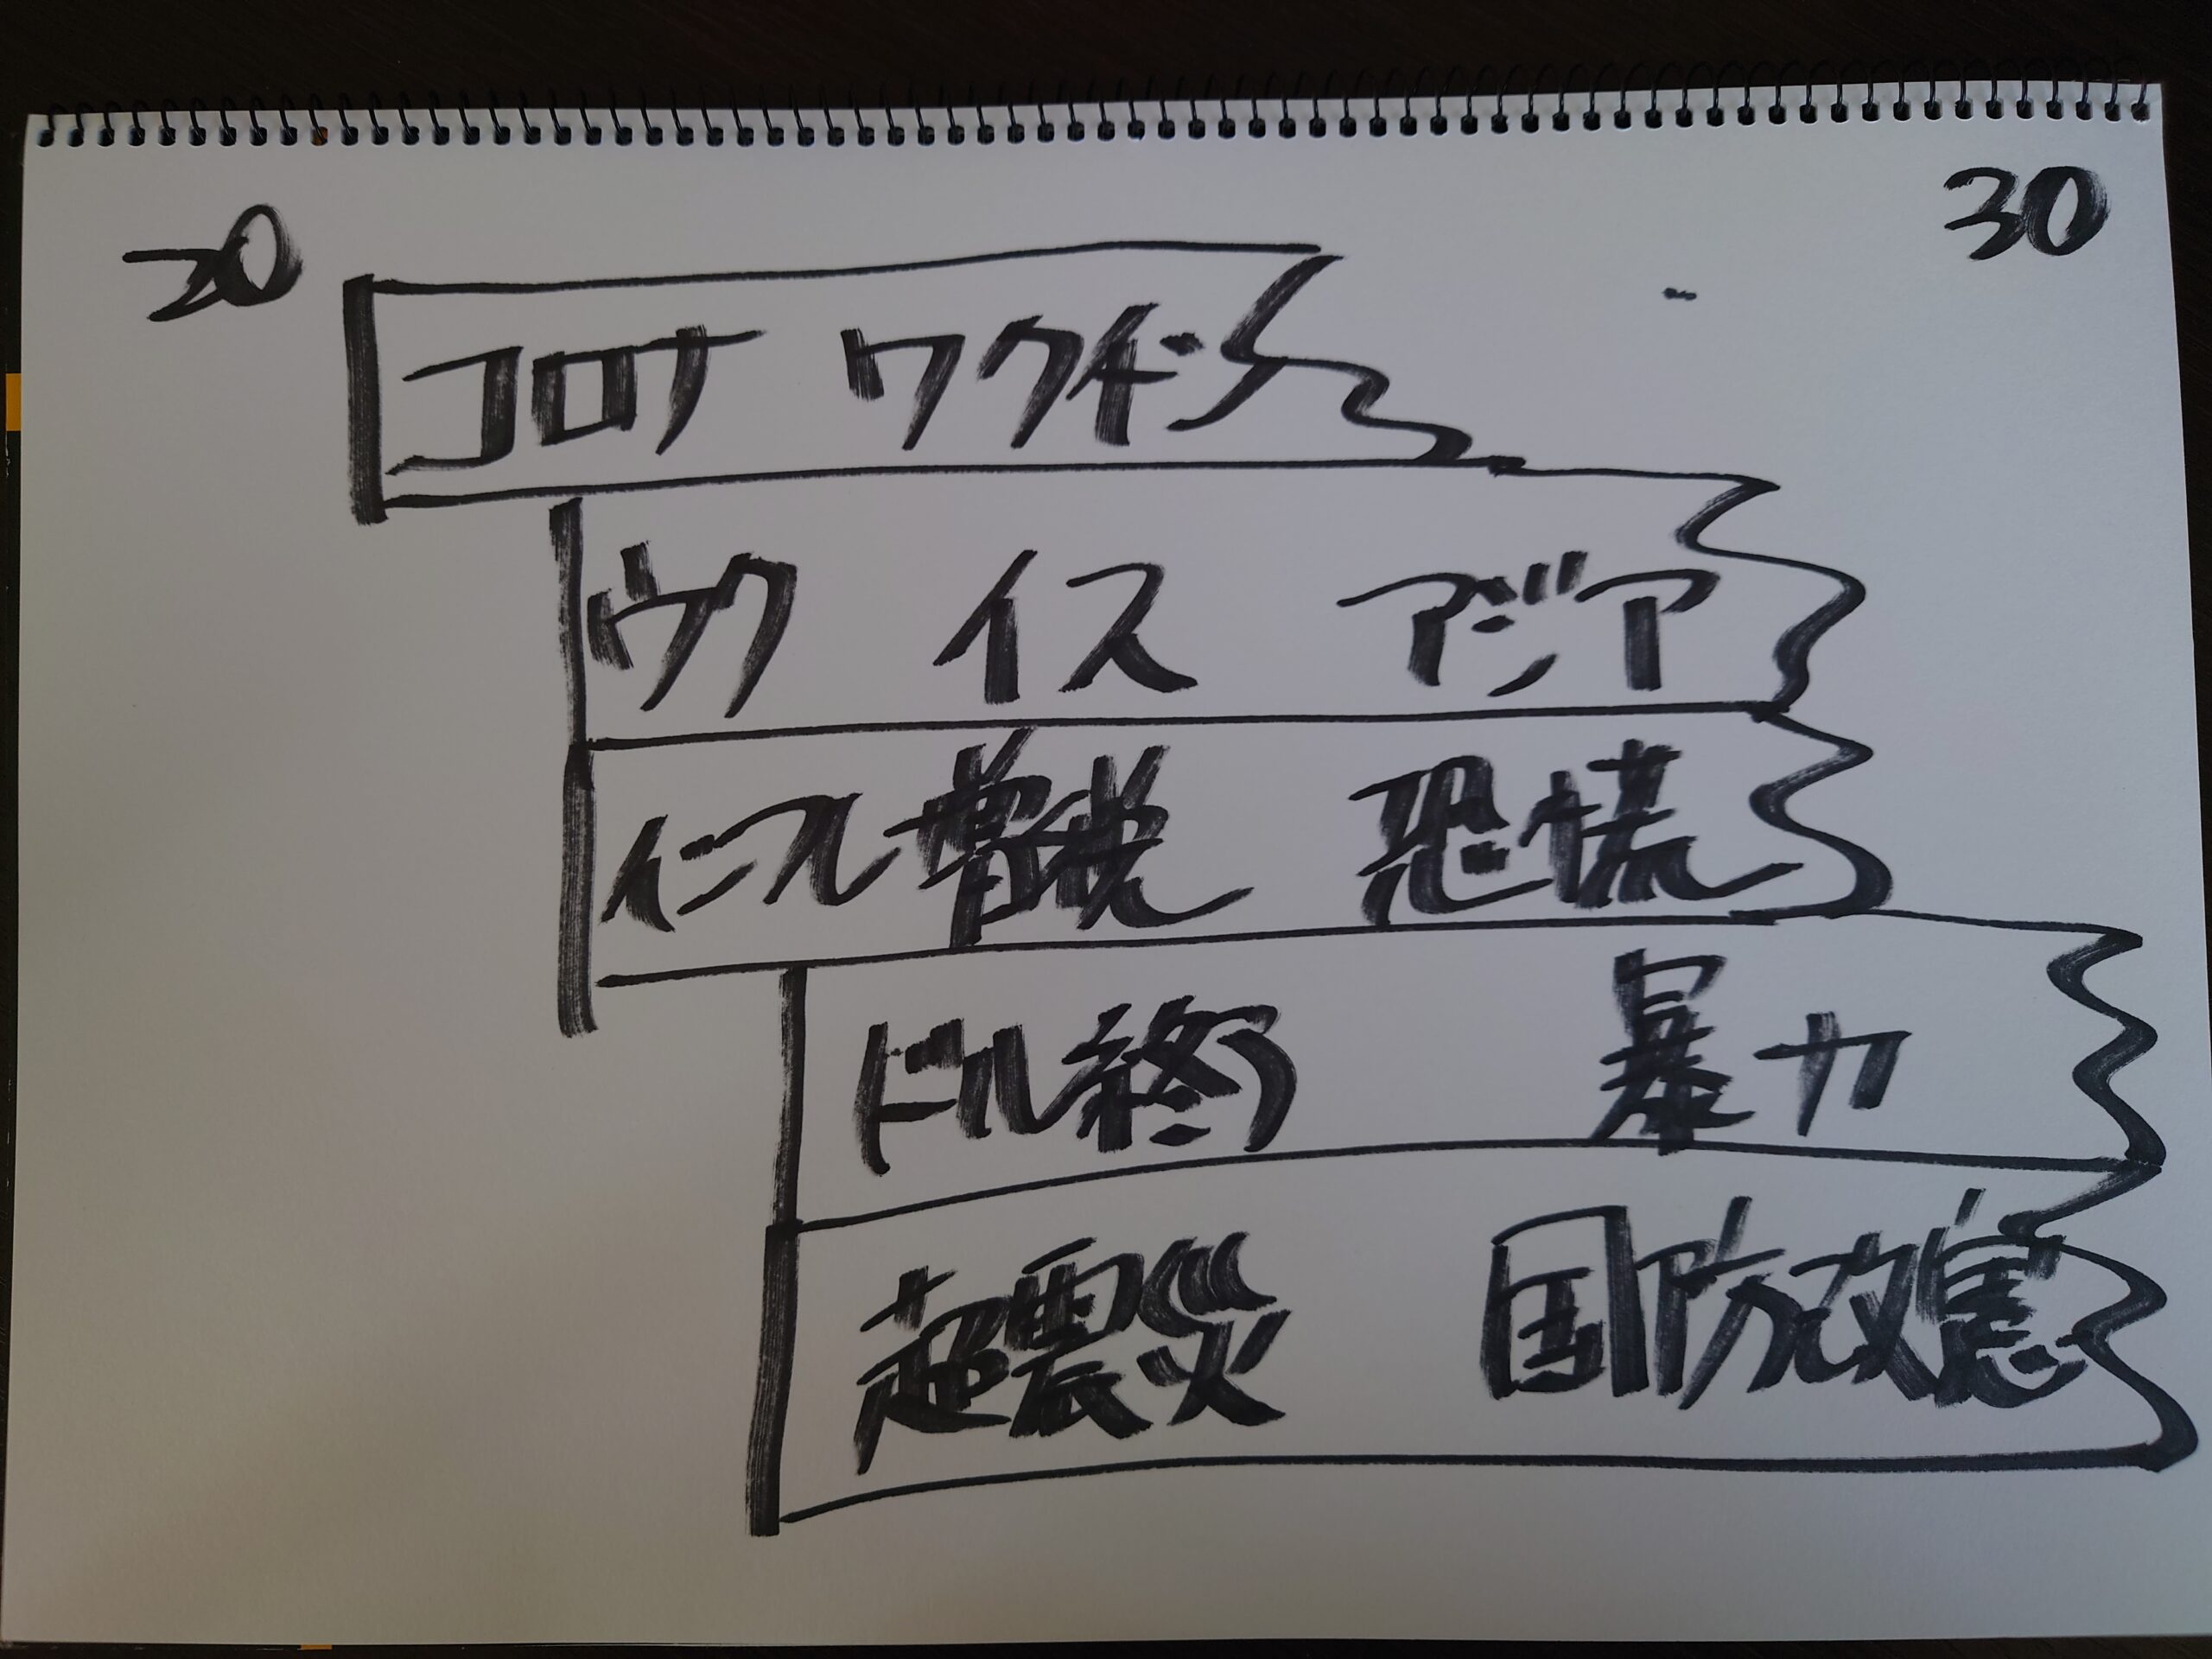 20 30
コロナ ワクチン
ウク イス アジア
インフル 増税 恐慌
ドル終 暴力
超震災 国防改憲